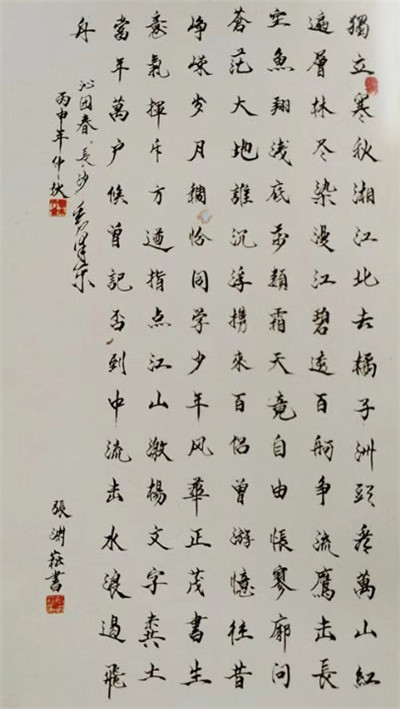 獨立寒秋湘江北去橘子洲頭看萬山紅
遍層林尽染漫江碧透百舸争流鷹击長
空魚翔浅底萬類霜天竟自由悵寥廓問
蒼茫大地誰沉浮携來百侣曾游憶往昔
峥嵘岁月稠恰同学少年风華正茂書生
意氣揮斥方遒指点江山激揚文字糞土
當年萬户侯曾記否到中流击水浪遏飛
舟
沁园春 長沙 毛泽东
丙申年仲秋
張渊 書